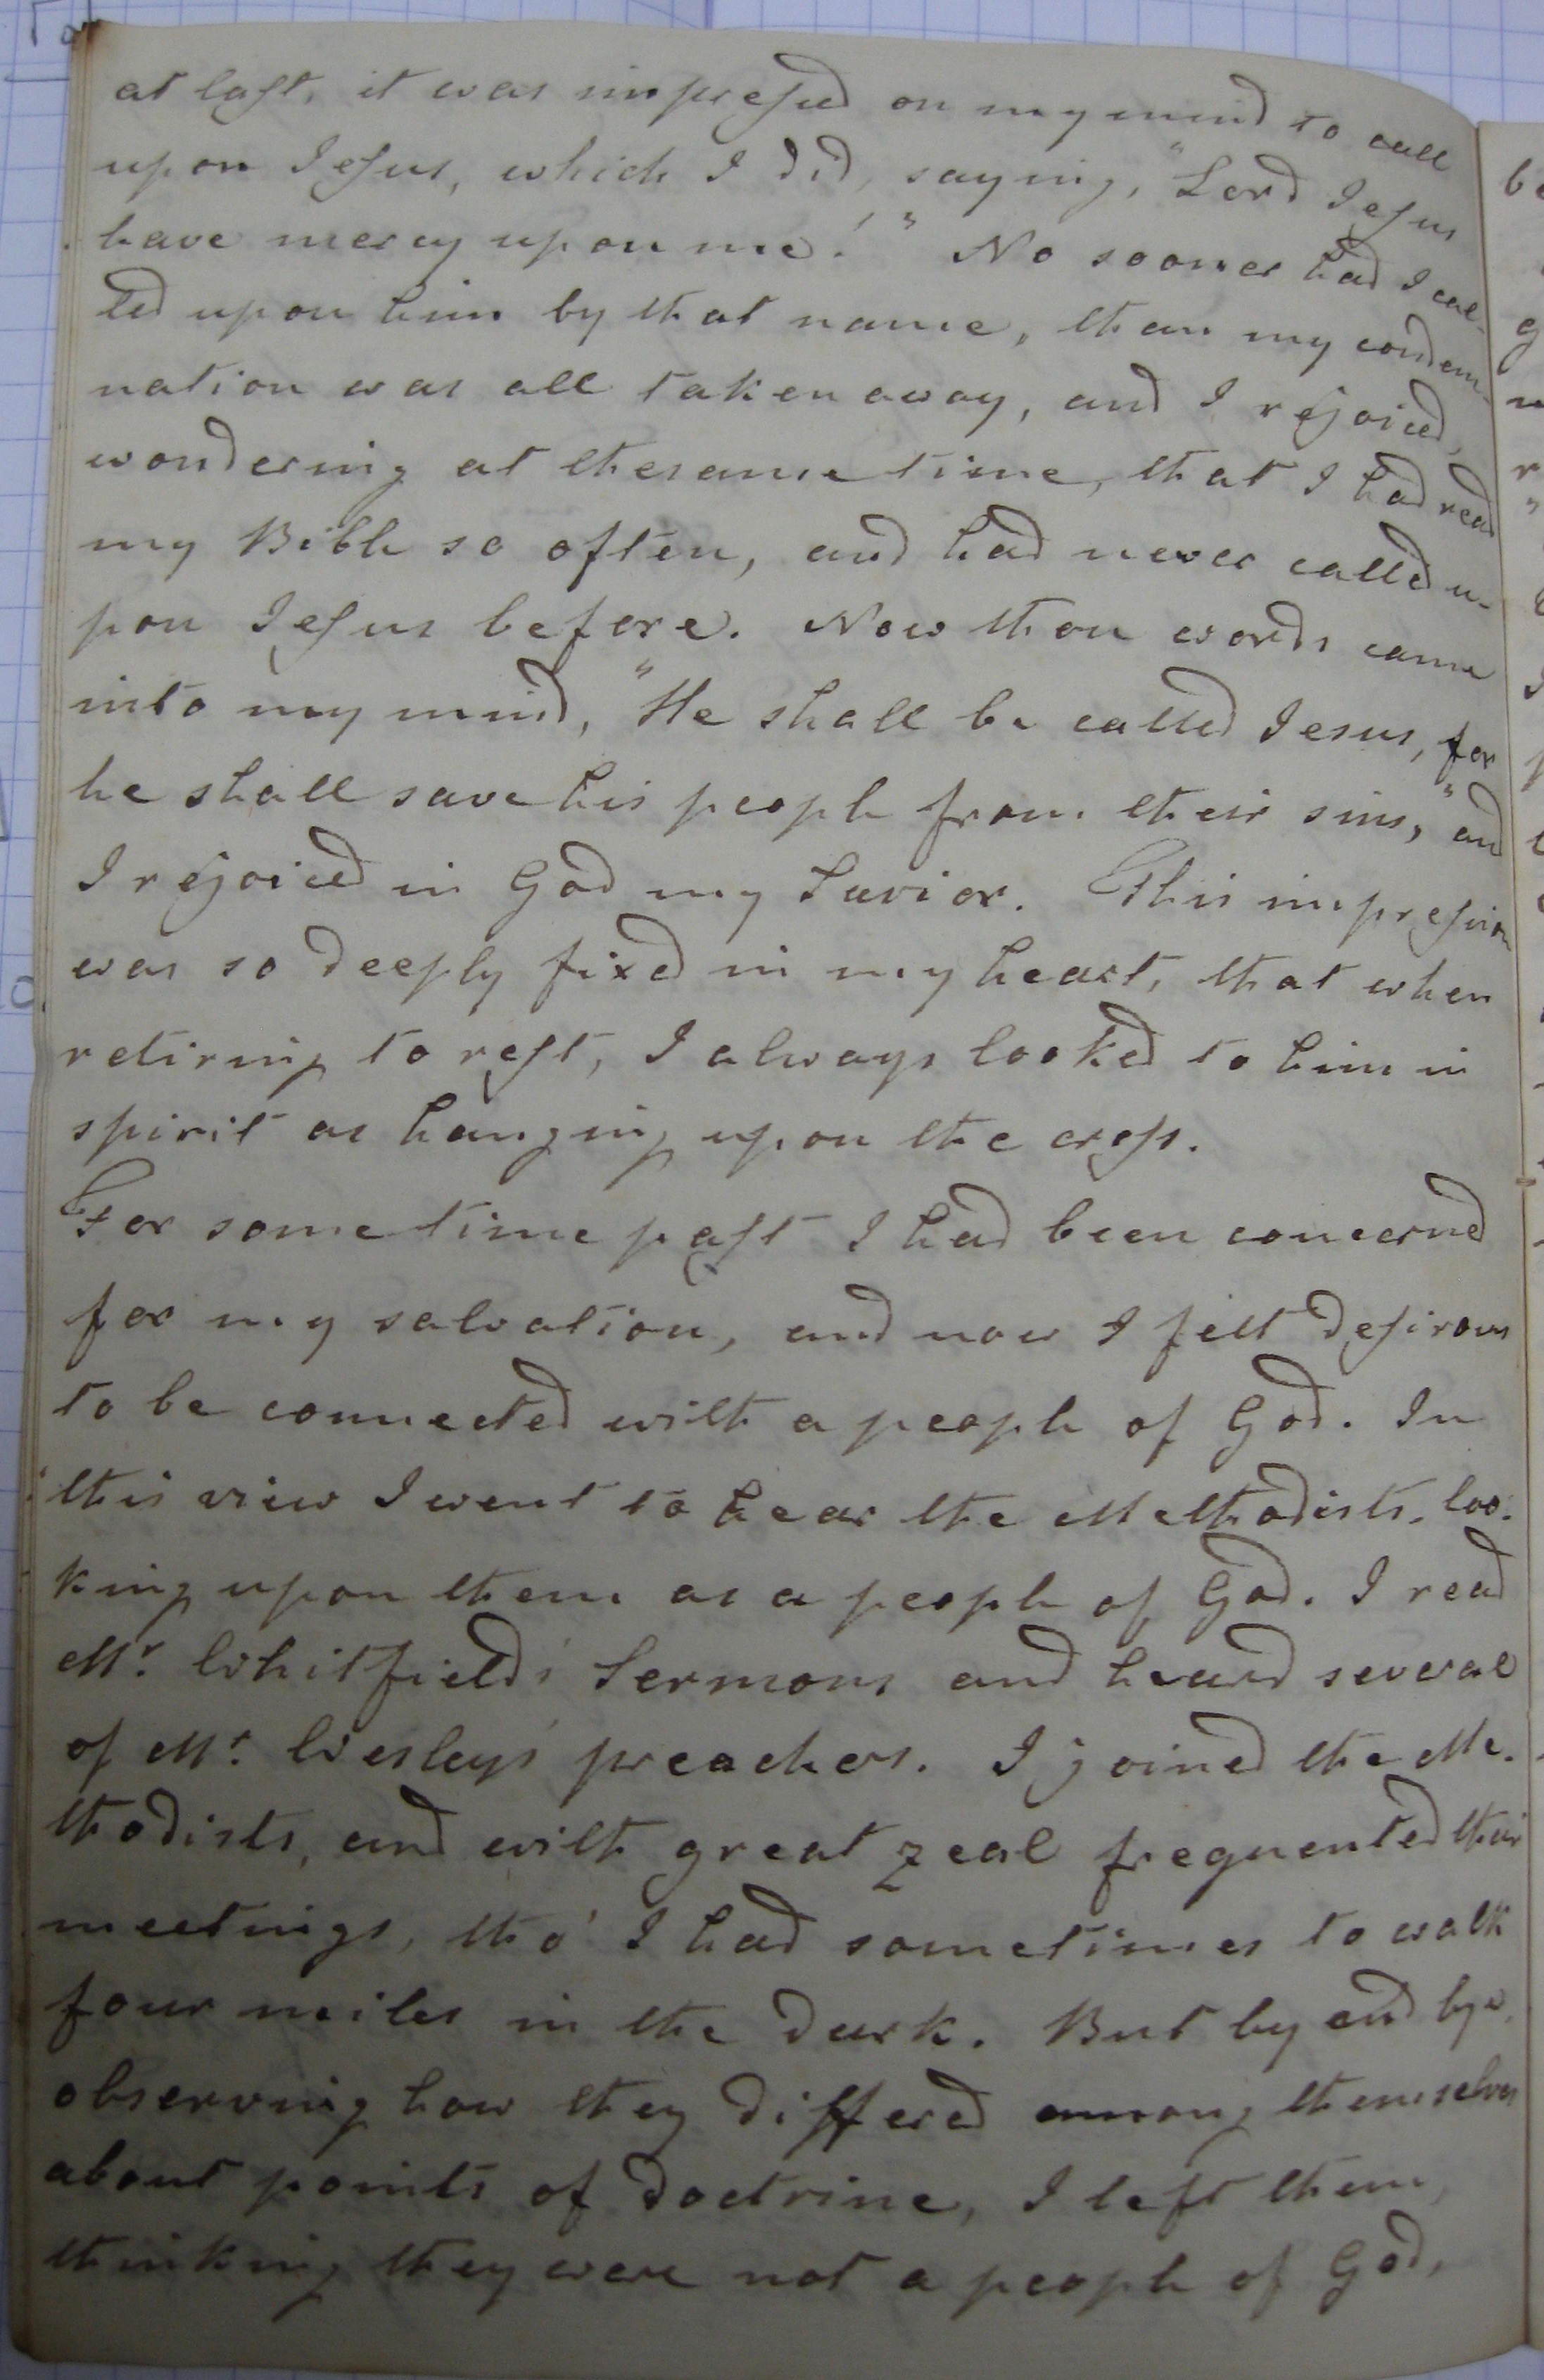 at last, it was impressed on my mind to call
upon Jesus, which I did, saying, "Lord Jesus
have mercy upon me!" No sooner had I cal-
led upon him by that name, than my condem-
nation was all taken away, and I rejoiced,
wondering at the same time, that I had read
my Bible so often, and had never called u-
pon Jesus before. Now those words came
into my mind, "He shall be called Jesus, for
he shall save his people from their sins," and
I rejoiced in God my Savior. This impression
was so deeply fixed in my heart, that when
retiring to rest, I always looked to him in
spirit as hanging upon the cross.
For some time past I had been concerned
for my salvation, and now I felt desirous
to be connected with a people of God. In
this view I went to hear the Methodists, loo-
king upon them as a people of God. I read
Mr. Whitfield's Sermons and heard several
of Mr. Wesley's preachers. I joined the Me-
thodists, and with great zeal frequented their
meetings, tho' I had sometimes to walk
four miles in the dark. But by and bye,
observing how they differed among themselves
about points of doctrine, I left them,
thinking they were not a people of God,